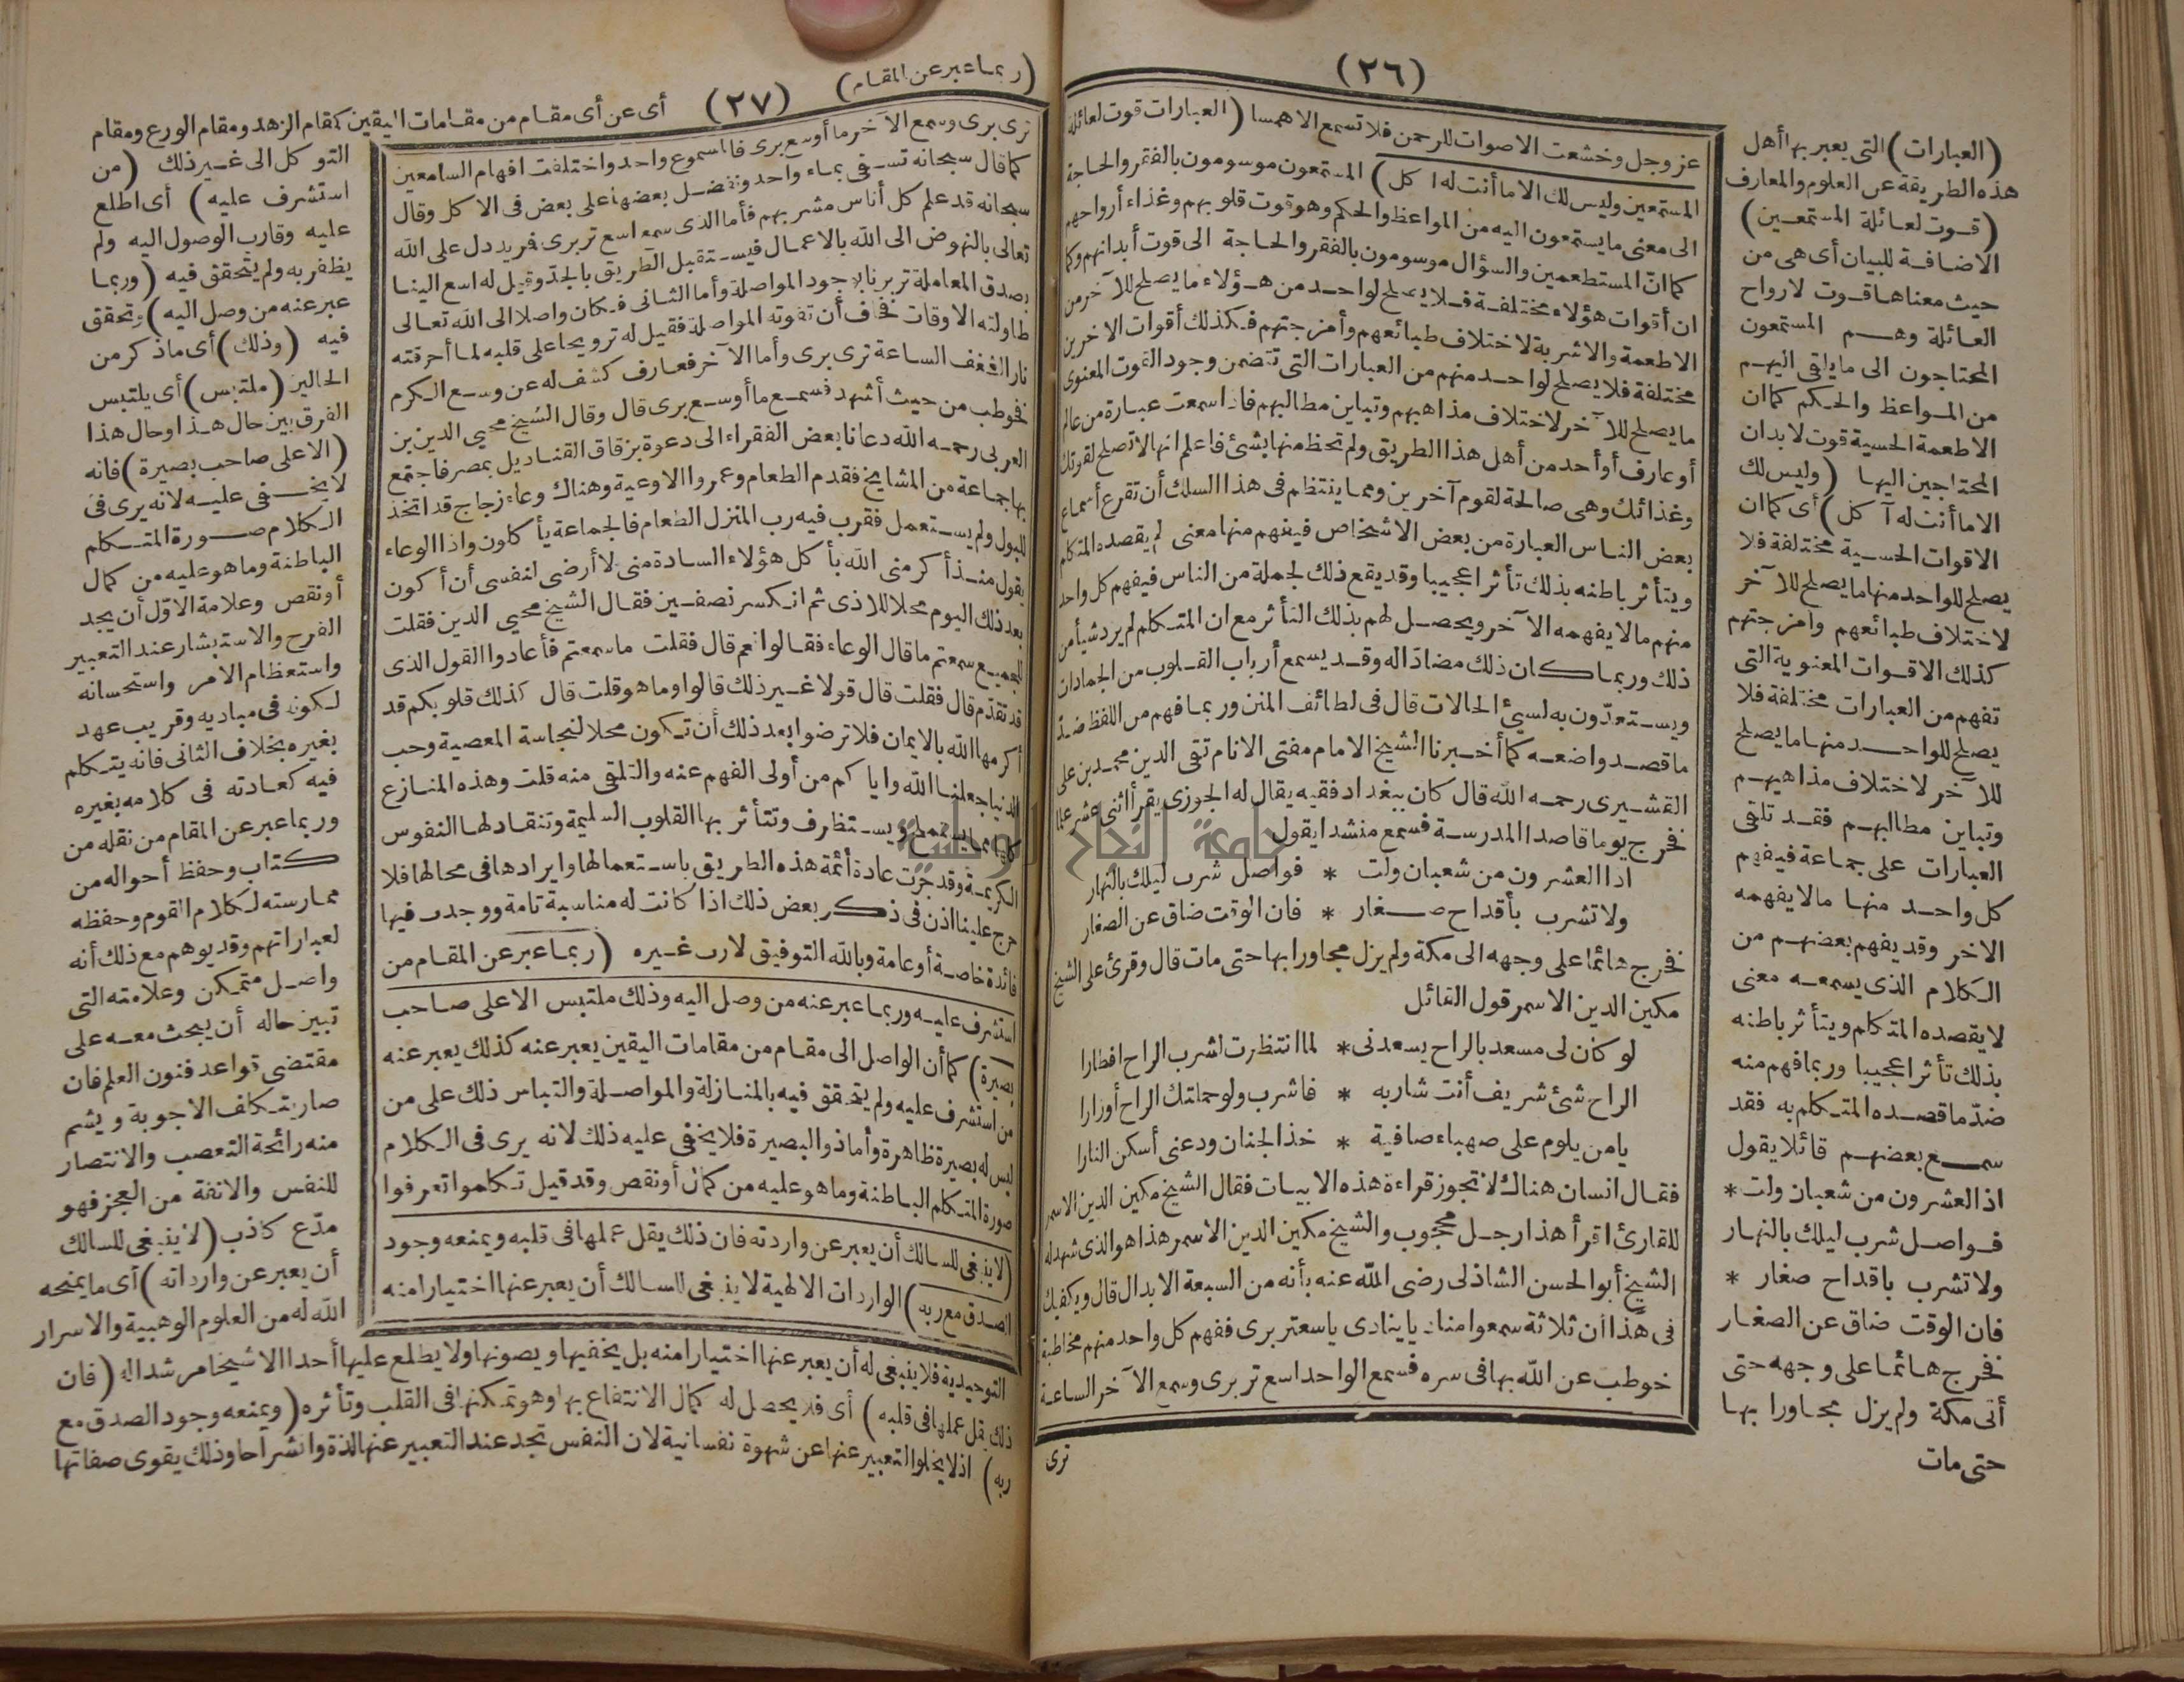 (٢٦)
عز وجل وخشعت الاصوات للرحمن فلا تسمع الا همسا (العبارات قوت لعائلة
المستمعين وليس لك الا ما أنت له ا كل) المستمعون موسومون بالفقر والحاجة
الى معنى ما يستمعون اليه من المواعظ والحكم وهو قوت قلوبهم وغذاء أرواحهم
كما ان المستطعمين والسؤال موسومون بالفقر والحاجة الى قوت أبدانهم وكما
ان أقوات هؤلاء مختلفة فلا يصلح لواحد من هؤلاء ما يصلح للآخر من
الاطعمة والاشربة لاختلاف طبائعهم وأمزجتهم فكذلك أقوات الاخرين
مختلفة فلا يصلح لواحد منهم من العبارات التى تتضمن وجود القوت المعنوى
ما يصلح للآخر لاختلاف مذاهبهم وتباين مطالبهم فاذا سمعت عبارة من عالم
أو عارف أو أحد من أهل هذا الطريق ولم تحظ منها بشئ فاعلم انها لا تصلح لقوتك
وغذائك وهى صالحة لقوم آخرين ومما ينتظم فى هذا السلك أن تقرع أسماع
بعض الناس العبارة من بعض الاشخاص فيفهم منها معنى لم يقصده المتكلم
ويتأثر باطنه بذلك تأثرا عجيبا وقد يقع ذلك لجملة من الناس فيفهم كل واحد
منهم مالا يفهمه الآخر ويحصل لهم بذلك التأثر مع ان المتكلم لم يرد شيأ من
ذلك وربما كان ذلك مضادا له وقد يسمع أرباب القلوب من الجمادات
ويستعدّون به لسنئ الحالات قال فى لطائف المنن وربما فهم من اللفظ ضدّ
ما قصد واضعه كما أخبرنا الشيخ الامام مفتى الانام تقى الدين محمد بن على
القشيرى رحمه الله قال كان ببغداد فقيه يقال له الجوزى يقرأ اثنى عشر علما
فخرج يوما قاصدا المدرسة فسمع منشدا يقول
اذا العشرون من شعبان ولت * فواصل شرب ليلك بالنهار
ولا تشرب بأقداح صغار * فان الوقت ضاق عن الصغار
فخرج هائما على وجهه الى مكة ولم يزل مجاورا بها حتى مات قال وقرئ على الشيخ
مكين الدين الاسمر قول القائل
لو كان لى مسعد بالراح يسعدنى * لما انتظرت لشرب الراح افطارا
الراح شئ شريف أنت شاربه * فاشرب ولو حملتك الراح أوزارا
يا من يلوم على صهباء صافية * خذ الجنان ودعنى أسكن النارا
فقال انسان هناك لا تجوز قراءة هذه الابيات فقال الشيخ مكين الدين الاسمر
للقارئ اقرأ هذا رجل محجوب والشيخ مكين الدين الاسمر هذا هو الذى شهد له
الشيخ أبو الحسن الشاذلى رضى الله عنه بأنه من السبعة الابدال قال ويكفيك
فى هذا أن ثلاثة سمعوا مناديا ينادى يا سعتر برى ففهم كل واحد منهم مخاطبة
خوطب عن الله بها فى سره فسمع الواحد اسع تر برى وسمع الآخر الساعة
ترى
(العبارات) التى يعبر بها أهل
هذه الطريقة عن العلوم والمعارف
(قوت لعائلة المستمعين)
الاضافة للبيان أى هى من
حيث معناها قوت لارواح
العائلة وهم المستمعون
المحتاجون الى ما يلقى اليهم
من المواعظ والحكم كما ان
الاطعمة الحسية قوت لابدان
المحتاجين اليها (وليس لك
الا ما أنت له آ كل) أى كما ان
الاقوات الحسية مختلفة فلا
يصلح للواحد منها ما يصلح للآخر
لاختلاف طبائعهم وامزجتهم
كذلك الاقوات المعنوية التى
تفهم من العبارات مختلفة فلا
يصلح للواحد منها ما يصلح
للآخر لاختلاف مذاهبهم
وتباين مطالبهم فقد تلقى
العبارات على جماعة فيفهم
كل واحد منها مالا يفهمه
الاخر وقد يفهم بعضهم من
الكلام الذى يسمعه معنى
لا يقصده المتكلم ويتأثر باطنه
بذلك تأثرا عجيبا وربما فهم منه
ضدّ ما قصده المتكلم به فقد
سمع بعضهم قائلا يقول
اذ العشرون من شعبان ولت *
فواصل شرب ليلك بالنهار
ولا تشرب باقداح صغار *
فان الوقت ضاق عن الصغار
فخرج هائما على وجهه حتى
أتى مكة ولم يزل مجاورا بها
حتى مات
(٢٧)
(ربما عبر عن المقام) أى عن أى مقام من مقامات اليقين كمقام الزهد ومقام الورع ومقام
ترى برى وسمع الآخر ما أوسع برى فالمسموع واحد واختلفت افهام السامعين
كما قال سبحانه تسقى بماء واحد ونفضل بعضها على بعض فى الاكل وقال
سبحانه قد علم كل أناس مشربهم فأما الذى سمع اسع تر برى فمريد دل على الله
تعالى بالنهوض الى الله بالاعمال فيستقبل الطريق بالجدّ وقيل له اسع الينا
بصدق المعاملة تر برنا بوجود المواصلة وأما الثانى فكان واصلا الى الله تعالى
طاولته الاوقات فخاف أن تفوته المواصلة فقيل له ترويحا على قلبه لما أحرقته
نار الشغف الساعة ترى برى وأما الآخر فعارف كشف له عن وسع الكرم
فخوطب من حيث أشهد فسمع ما أوسع برى قال وقال الشيخ محيي الدين بن
العربى رحمه الله دعانا بعض الفقراء الى دعوة بزقاق القناديل بمصر فاجتمع
بها جماعة من المشايخ فقدم الطعام وعمروا الاوعية وهناك وعاء زجاج قد اتخذ
للبول ولم يستعمل فقرب فيه رب المنزل الطعام فالجماعة يأكلون واذا الوعاء
يقول منذ أكرمنى الله بأكل هؤلاء السادة منى لا أرضى لنفسى أن أكون
بعد ذلك اليوم محلا للاذى ثم انكسر نصفين فقال الشيخ محيي الدين فقلت
للجميع سمعتم ما قال الوعاء فقالوا نعم قال فقلت ما سمعتم فأعادوا القول الذى
قد تقدّم قال فقلت قال قولا غير ذلك قالوا وما هو قلت قال كذلك قلوبكم قد
أكرمها الله بالايمان فلا ترضوا بعد ذلك أن تكون محلا لنجاسة المعصية وحب
الدنيا جعلنا الله واياكم من أولى الفهم عنه والتلقى منه قلت وهذه المنازع
كلها مما يستملح ويستظرف وتتأثر بها القلوب السليمة وتنقاد لها النفوس
الكريمة وقد جرت عادة أئمة هذه الطريق باستعمالها وايرادها فى محالها فلا
حرج علينا اذن فى ذكر بعض ذلك اذا كانت له مناسبة تامة ووجدت فيها
فائدة خاصة أو عامة وبالله التوفيق لا رب غيره (ربما عبر عن المقام من
استشرف عليه وربما عبر عنه من وصل اليه وذلك ملتبس الا على صاحب
بصيرة) كما أن الواصل الى مقام من مقامات اليقين يعبر عنه كذلك يعبر عنه
من استشرف عليه ولم يتحقق فيه بالمنازلة والمواصلة والتباس ذلك على من
ليس له بصيرة ظاهرة وأما ذو البصيرة فلا يخفى عليه ذلك لانه يرى فى الكلام
صورة المتكلم الباطنة وما هو عليه من كمال أو نقص وقد قيل تكلموا تعرفوا
(لا ينبغى للسالك أن يعبر عن وارداته فان ذلك يقل عملها فى قلبه ويمنعه وجود
الصدق مع ربه) الواردات الالهية لا ينبغى للسالك أن يعبر عنها اختيارا منه
التوكل الى غير ذلك (من
استشرف عليه) أى اطلع
عليه وقارب الوصول اليه ولم
يظفر به ولم يتحقق فيه (وربما
عبر عنه من وصل اليه) وتحقق
فيه (وذلك) أى ما ذكر من
الحالين (ملتبس) أى يلتبس
الفرق بين حال هذا وحال هذا
(الا على صاحب بصيرة) فانه
لا يخفى عليه لانه يرى فى
الكلام صورة المتكلم
الباطنة وما هو عليه من كمال
أو نقص وعلامة الاوّل أن يجد
الفرح والاستبشار عند التعبير
واستعظام الامر واستحسانه
لكونه فى مباديه وقريب عهد
بغيره بخلاف الثانى فانه يتكلم
فيه كعادته فى كلامه بغيره
وربما عبر عن المقام من نقله من
كتاب وحفظ أحواله من
ممارسته لكلام القوم وحفظه
لعباراتهم وقد يوهم مع ذلك أنه
واصل متمكن وعلامته التى
تبين حاله أن يبحث معه على
مقتضى قواعد فنون العلم فان
صار يتكلف الاجوبة ويشم
منه رائحة التعصب والانتصار
للنفس والانفة من العجز فهو
مدّع كاذب (لا ينبغى للسالك
أن يعبر عن وارداته) أى ما يمنحه
الله له من العلوم الوهبية والاسرار
التوحيدية فلا ينبغى له أن يعبر عنها اختيارا منه بل يخفيها ويصونها ولا يطلع عليها أحدا الا شيخا مرشدا له (فان
ذلك يقل عملها فى قلبه) أى فلا يحصل له كمال الانتفاع بها وهو تمكنها فى القلب وتأثره (ويمنعه وجود الصدق مع
ربه) اذ لا يخلو التعبير عنها عن شهوة نفسانية لان النفس تجد عند التعبير عنها لذة وانشراحا وذلك يقوى صفاتها
جامعة النجاح الوطنية